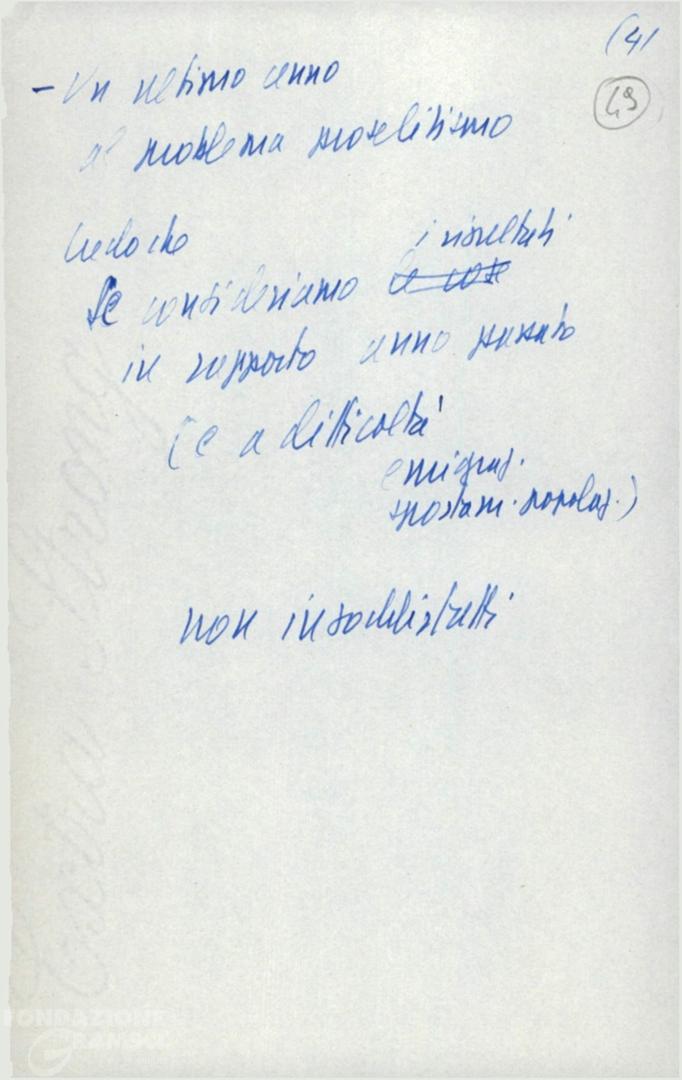 (41
49
- Un ultimo cenno
al problema proselitismo
Credo che
i risultati
se consideriamo le cose
in rapporto anno passato
(e a difficoltà
emigraz.
spostam. popolaz.)
non insoddisfatti
Extra Strong
FONDAZIONE
GRAMSCI